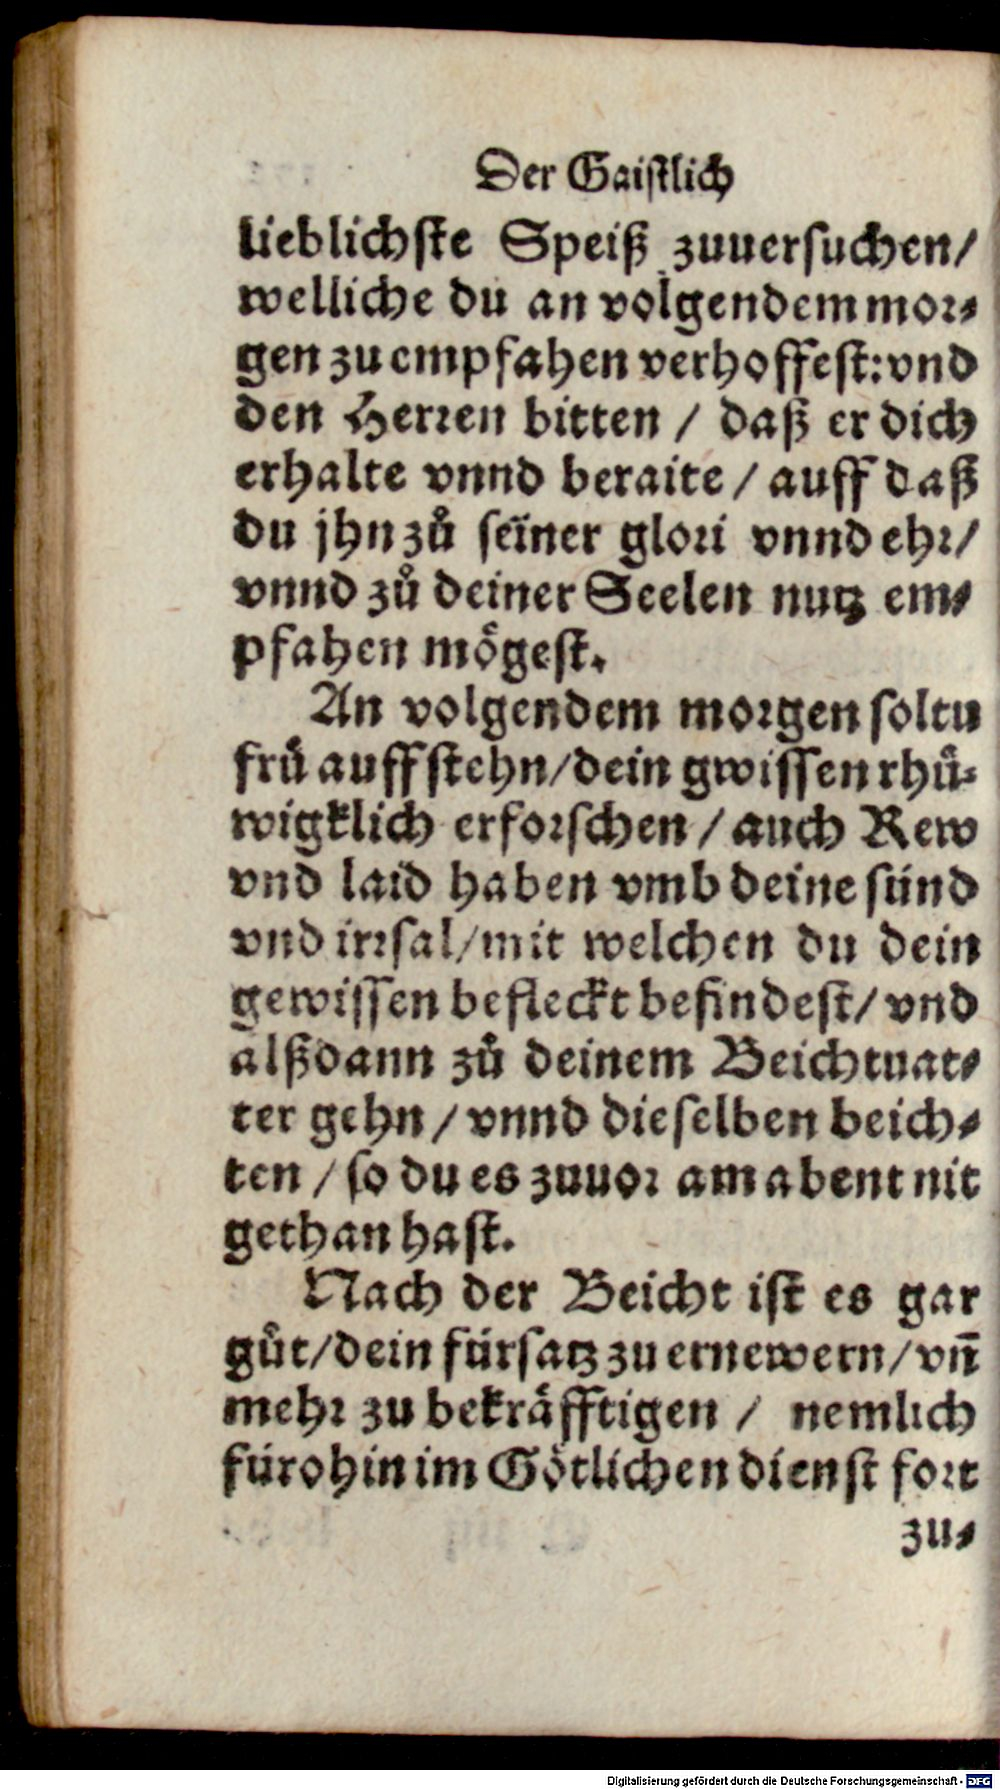 Der Gaistlich
lieblichste Speiß zuuersuchen/
welliche du an volgendem mor⸗
gen zu empfahen verhoffest: vnd
den Herren bitten / daß er dich
erhalte vnnd beraite / auff daß
du jhn zů seiner glori vnnd ehr/
vnnd zů deiner Seelen nutz em⸗
pfahen mögest.
An volgendem morgen soltu
frů auffstehn/dein gwissen rhů⸗
wigklich erforschen / auch Rew
vnd laid haben vmb deine sünd
vnd irrsal/mit welchen du dein
gewissen befleckt befindest/ vnd
alßdann zů deinem Beichtuat⸗
ter gehn / vnnd dieselben beich⸗
ten / so du es zuuor am abent nit
gethan hast.
Nach der Beicht ist es gar
gůt/dein fürsatz zu ernewern/ vñ
mehr zu bekräfftigen / nemlich
fürohin im Götlichen dienst fort
zu⸗
Digitalisierung gefördert durch die Deutsche Forschungsgemeinschaft - DFG